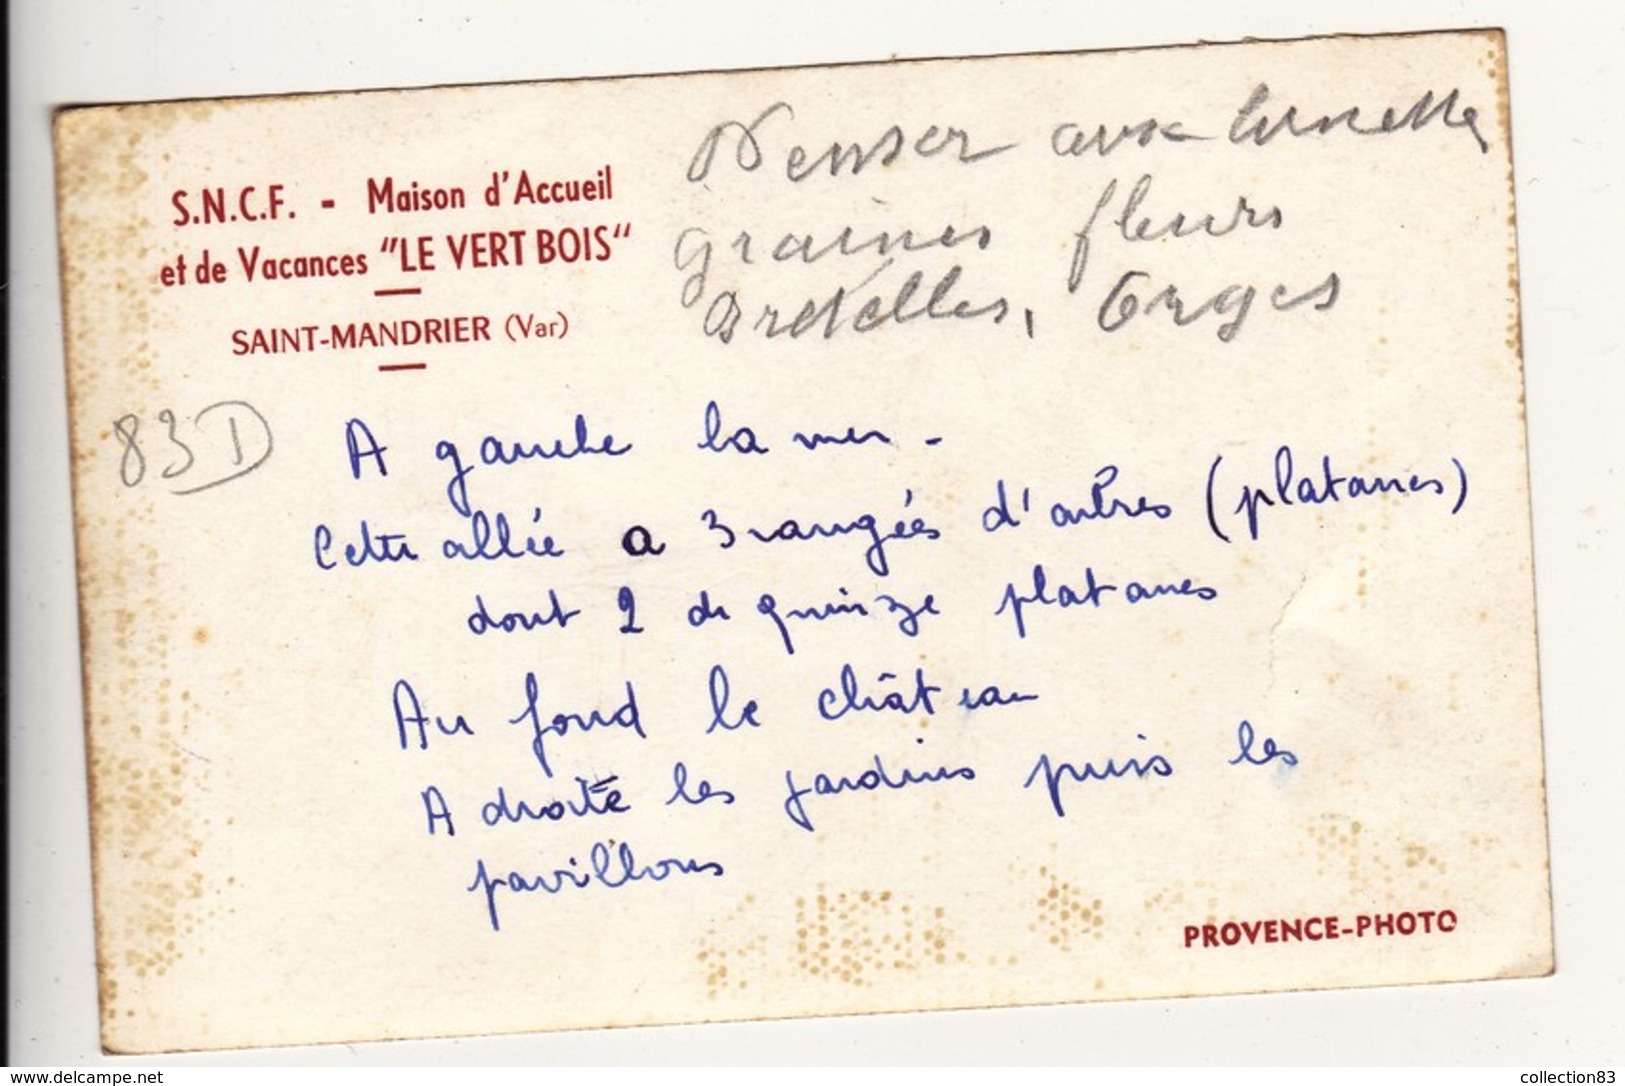 S.N.C.F. - Maison d'Accueil
et de Vacances "LE VERT BOIS"
SAINT-MANDRIER (Var)
Penser aux lunettes
graines fleurs
Bretelles, Orges
83 D
A gauche la mer -
Cette allée a 3 rangées d'arbres (platanes)
dont 2 de quinze platanes
Au fond le château
A droite les jardins puis les
pavillons
PROVENCE-PHOTO
www.delcampe.net
collection83